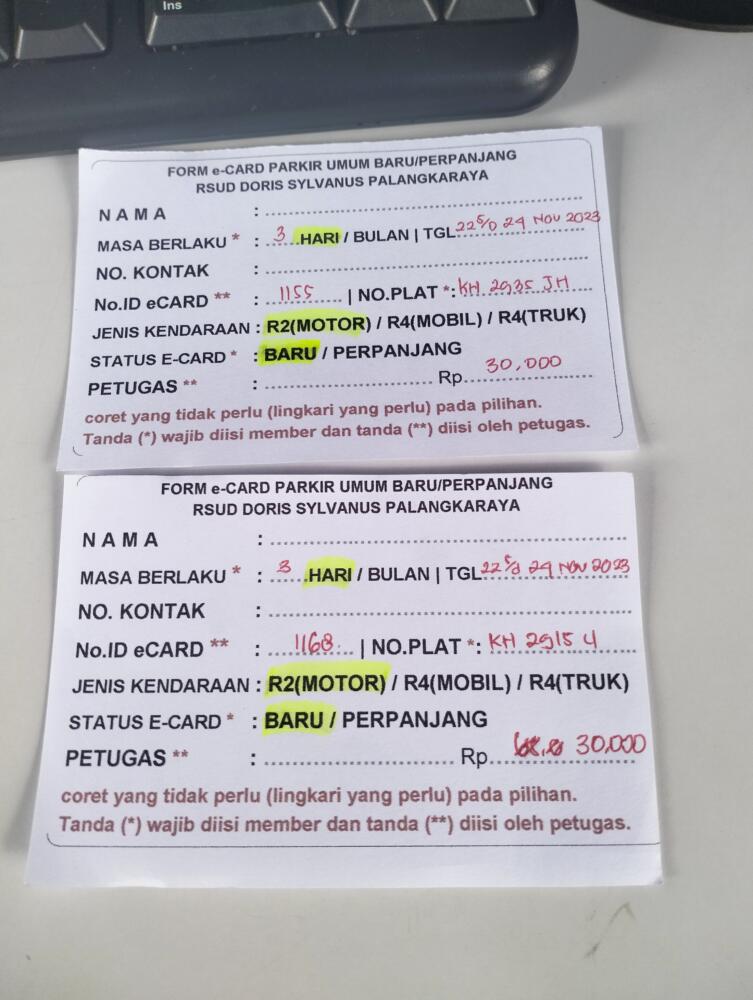 Ins
FORM e-CARD PARKIR UMUM BARU/PERPANJANG
RSUD DORIS SYLVANUS PALANGKARAYA
NAMA :
MASA BERLAKU * : 3 HARI / BULAN | TGL 22 S/D 24 NOV 2023
NO. KONTAK :
No.ID eCARD ** : 1155 | NO.PLAT *: KH 2935 JH
JENIS KENDARAAN : R2(MOTOR) / R4(MOBIL) / R4(TRUK)
STATUS E-CARD * : BARU / PERPANJANG
PETUGAS ** : Rp 30.000
coret yang tidak perlu (lingkari yang perlu) pada pilihan.
Tanda (*) wajib diisi member dan tanda (**) diisi oleh petugas.
FORM e-CARD PARKIR UMUM BARU/PERPANJANG
RSUD DORIS SYLVANUS PALANGKARAYA
NAMA :
MASA BERLAKU * : 3 HARI / BULAN | TGL 22 S/d 24 NOV 2023
NO. KONTAK :
No.ID eCARD ** : 1168 | NO.PLAT *: KH 2915 U
JENIS KENDARAAN : R2(MOTOR) / R4(MOBIL) / R4(TRUK)
STATUS E-CARD * : BARU / PERPANJANG
PETUGAS ** : Rp 30.000
coret yang tidak perlu (lingkari yang perlu) pada pilihan.
Tanda (*) wajib diisi member dan tanda (**) diisi oleh petugas.